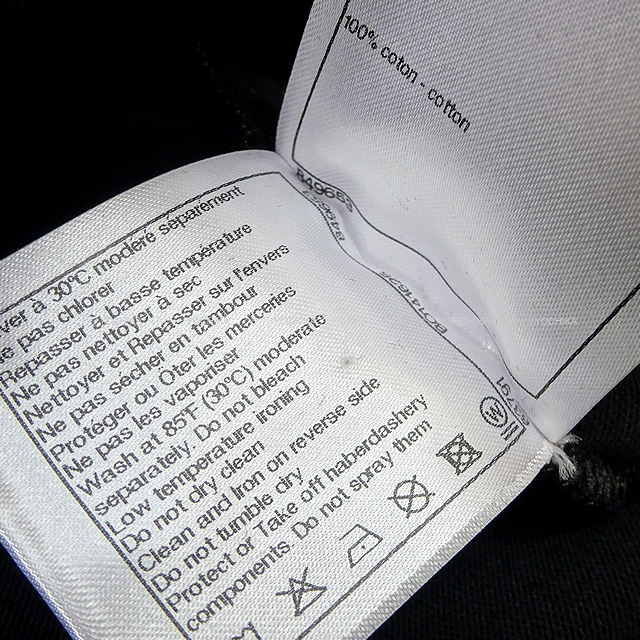 100% coton - cotton
ver à 30°C modéré séparément
e pas chlorer
Repasser à basse température
Ne pas nettoyer à sec
Nettoyer et Repasser sur l'envers
Ne pas sécher en tambour
Protéger ou Ôter les merceries
Ne pas les vaporiser
Wash at 85°F (30°C) moderate
separately. Do not bleach
Low temperature ironing
Do not dry clean
Clean and Iron on reverse side
Do not tumble dry
Protect or Take off haberdashery
components. Do not spray them
W